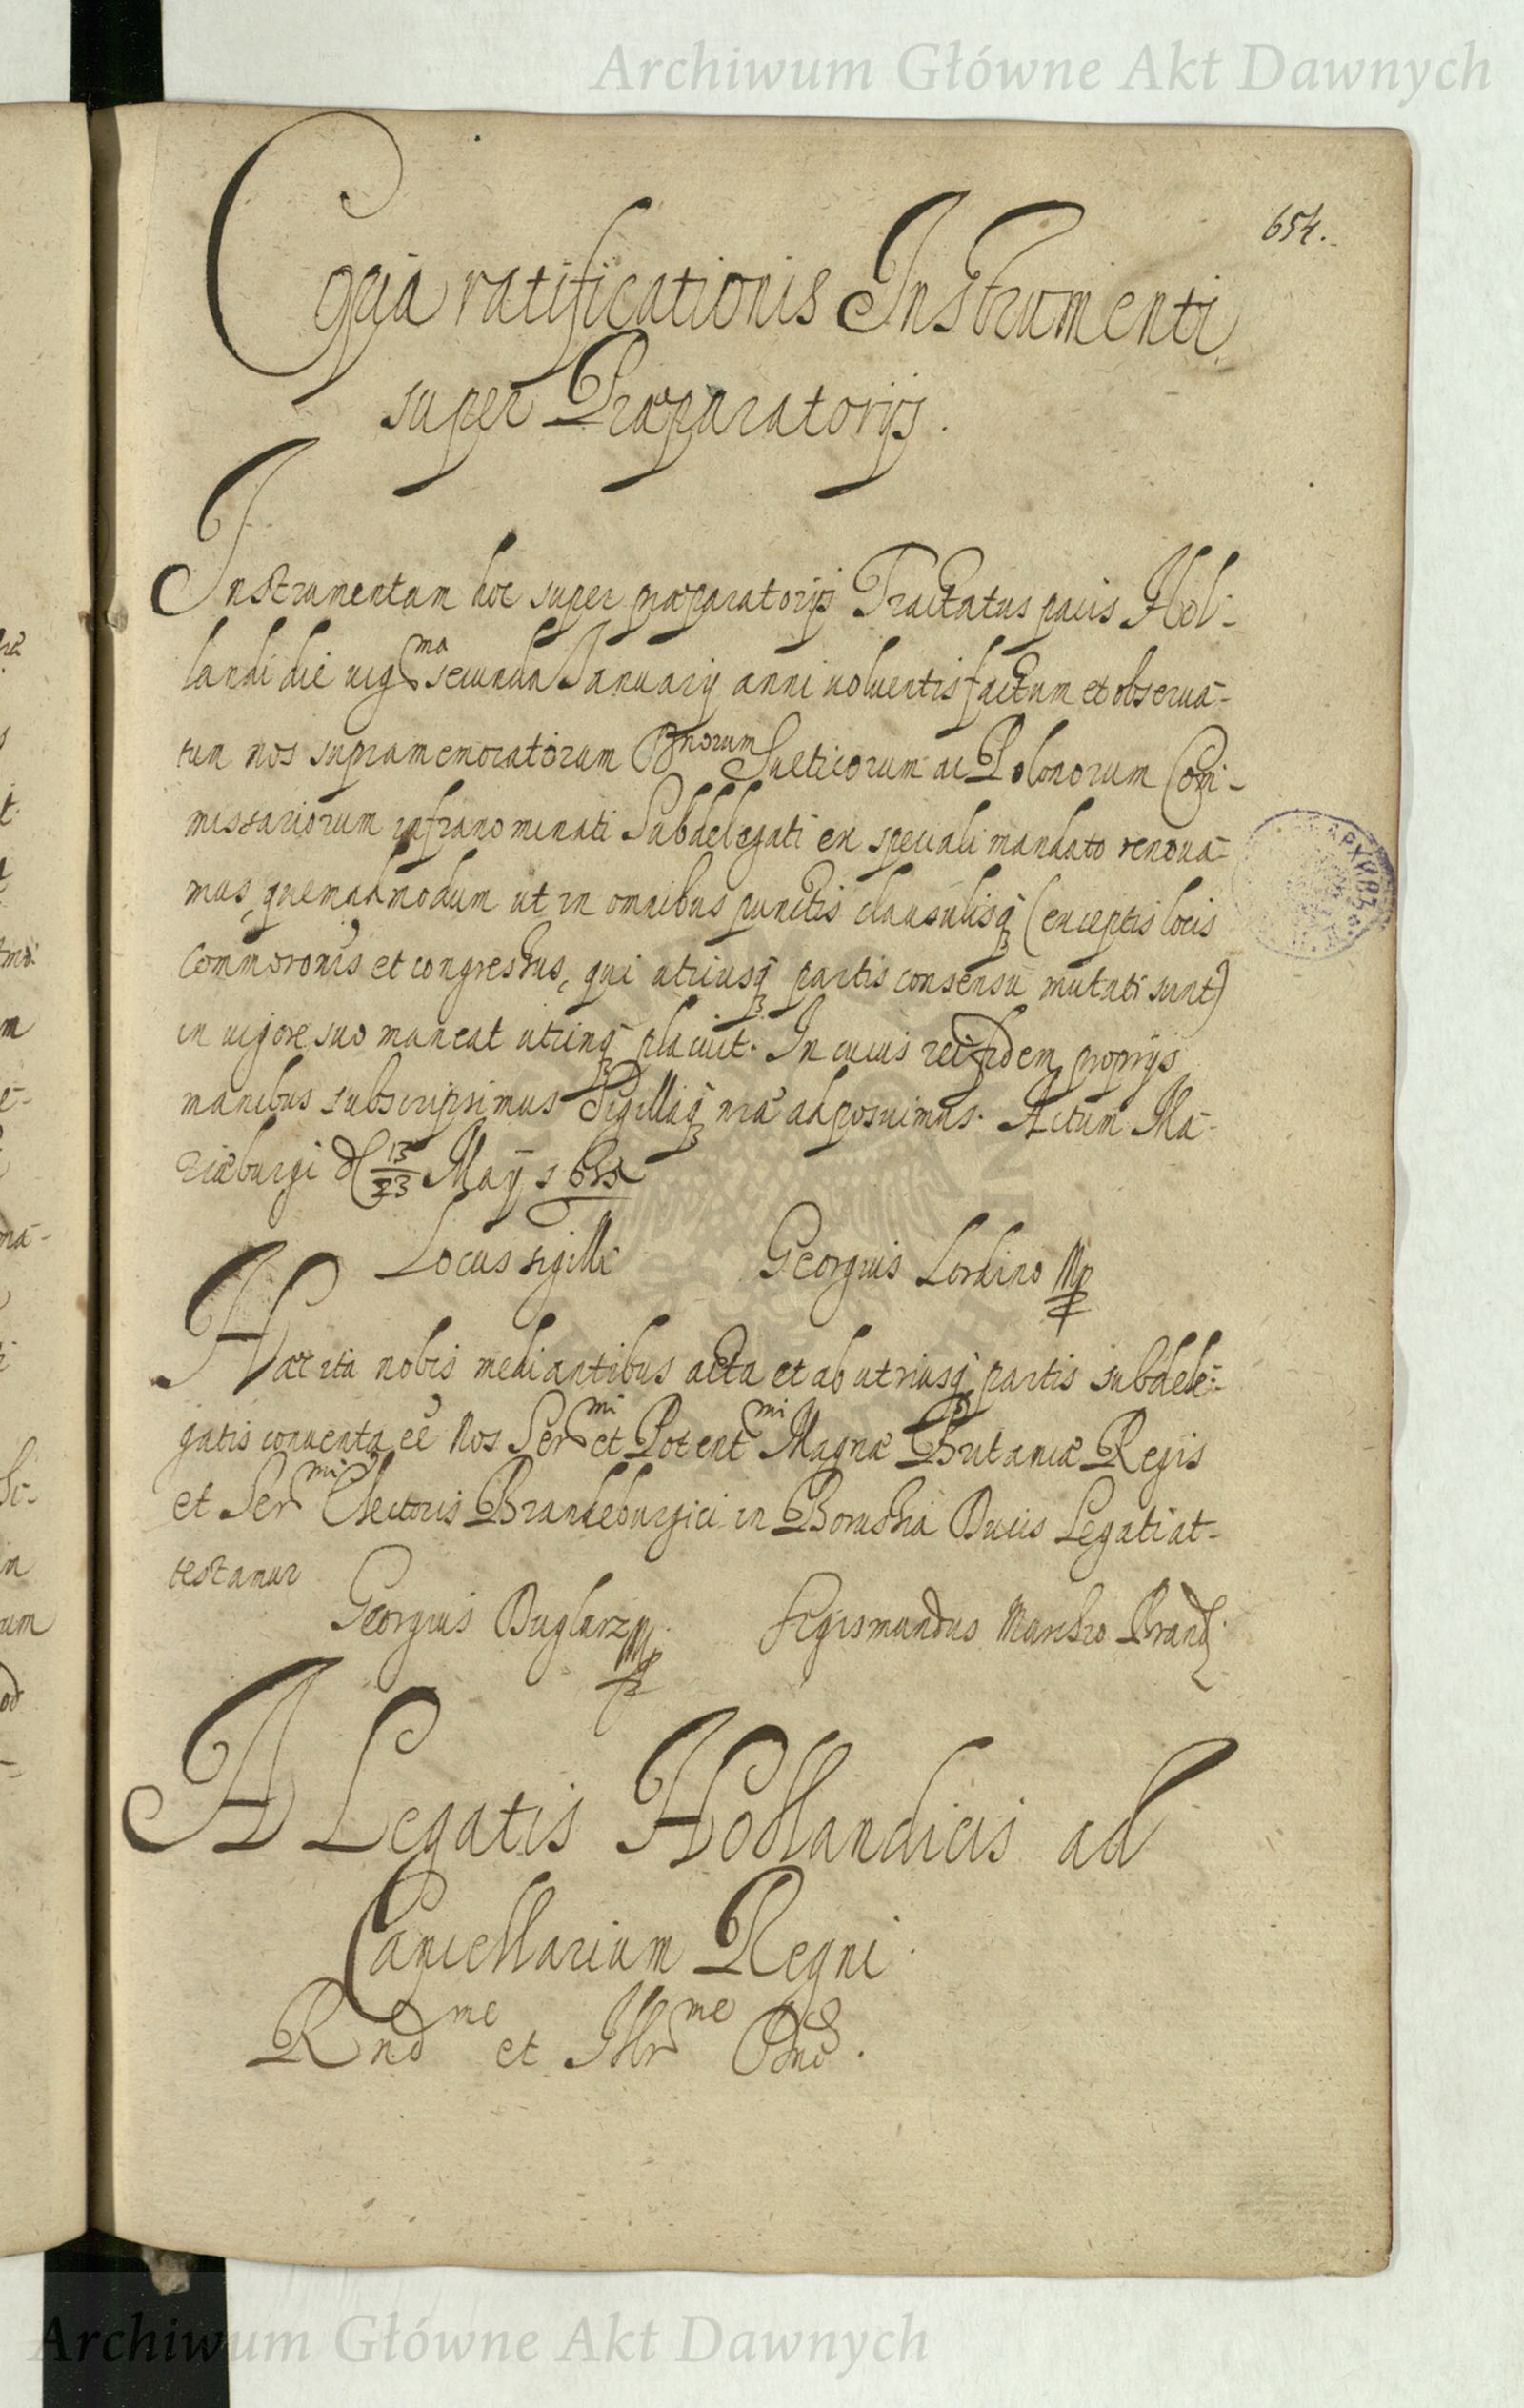 Archiwum Główne Akt Dawnych
654.
Copia ratificationis Instrumenti
super Præparatorijs.
Instrumentum hoc super præparatorijs Tractatus pacis Hol-
landi die vigmo secunda January anni voluentis factum et observa-
tum nos supramemoratorum Dnorum Sueticorum ac Polonorum Com-
missariorum infranominati Subdelegati ex speciali mandato renova-
mus, quemadmodum ut in omnibus punctis clausulisq (exceptis locis
commoronis et congressus, qui utriusq partis consensu mutati sunt)
in vigore suo maneat utrinq placuit. In cuius rei fidem proprijs
manibus subscripsimus Sigillaq nra adposuimus. Actum Ma-
riæburgi d 13/23 May
Locus sigilli Georgius Mp
Hæc ita nobis mediantibus acta et ab utriusq partis subdele-
gatis conventa eē Nos Sermi et Potentmi Magnæ Britaniæ Regis
et Sermi Electoris Brandeburgici in Borussia Ducis Legati at-
testamur
Georgius Duglarz Mp Sigismundus Marchio Brand.
A Legatis Hollandicis ad
Cancellarium Regni.
Rndme et Illrme Dne.
Archiwum Główne Akt Dawnych